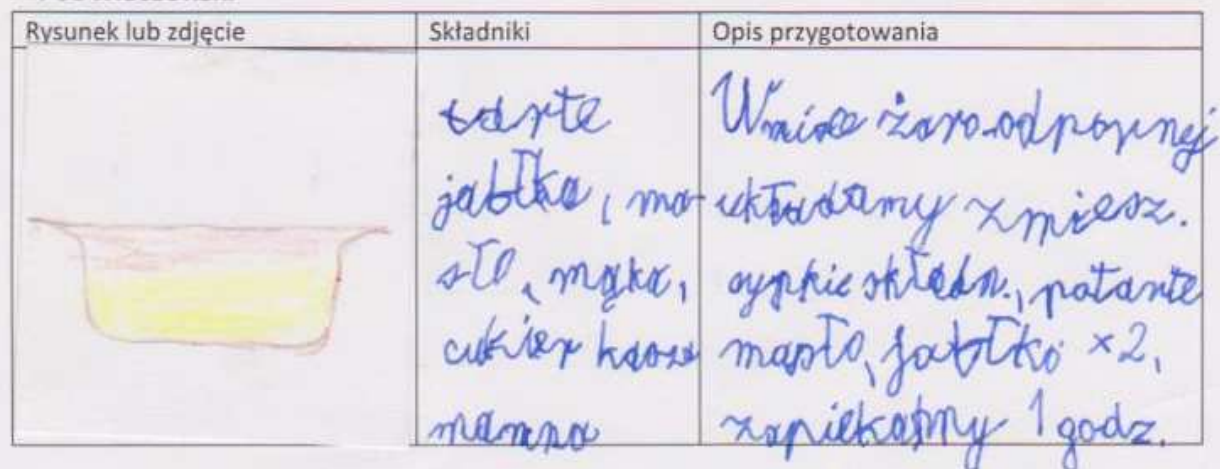 Rysunek lub zdjęcie
Składniki
Opis przygotowania
tarte
jabłka, ma-
sło, mąka,
cukier kasza
manna
W misce żaro-odpornej
układamy zmiesz.
sypkie składn., potarte
masło, jabłko ×2,
zapiekamy 1 godz.